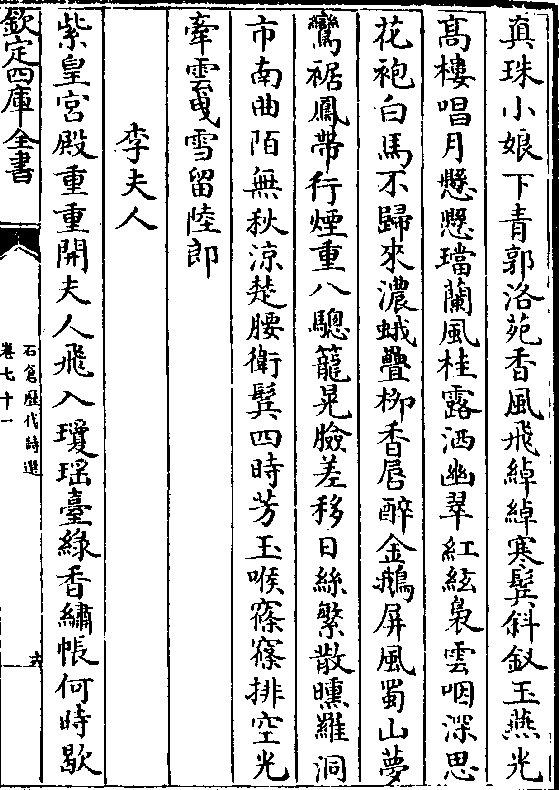 真珠小娘下青郭洛苑香風飛綽綽寒鬢斜釵玉燕光
髙樓唱月懸懸璫蘭風桂露洒幽翠紅絃裊雲咽深思
花袍白馬不歸來濃蛾疊柳香唇醉金鵝屏風蜀山夢
鸞裾鳳帶行煙重八驄籠晃臉差移日絲繁散曛羅洞
市南曲陌無秋涼楚腰衛鬢四時芳玉喉窱窱排空光
牽雲曵雪留陸郎
李夫人
紫皇宮殿重重開夫人飛入瓊瑶臺綠香繡帳何時歇
欽定四庫全書
石倉歴代詩選
卷七十一
六